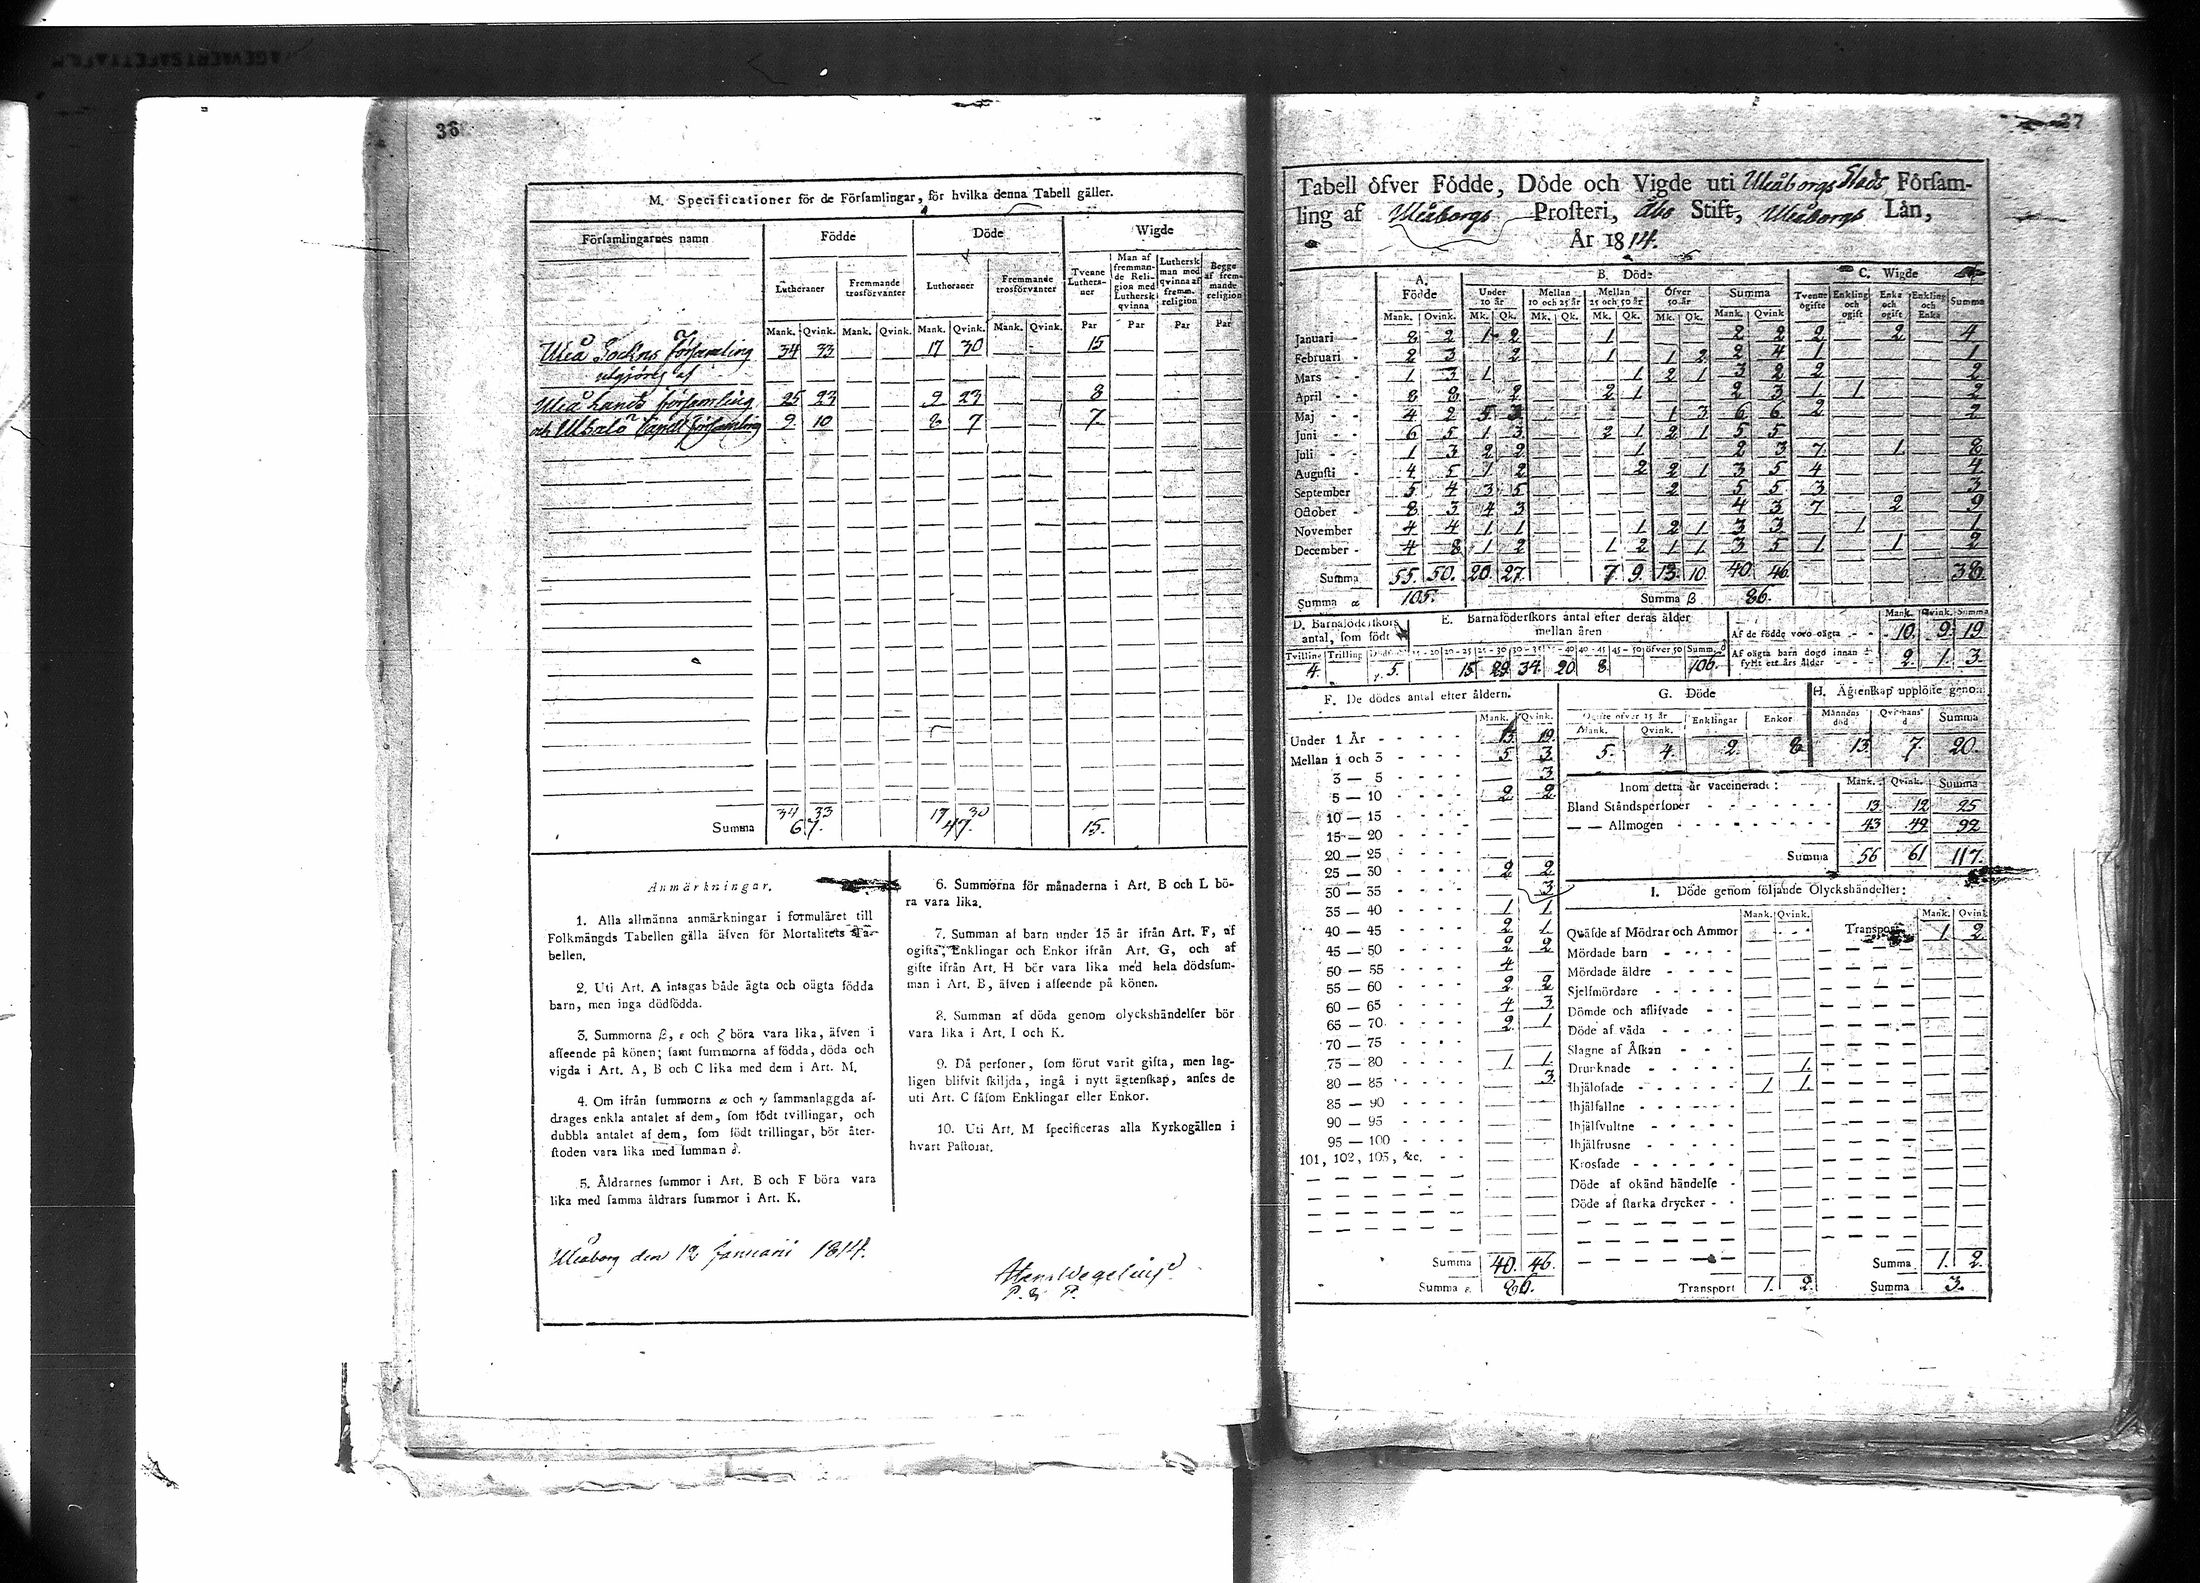 36
M. Specificationer för de Församlingar, för hvilka denna Tabell gäller.
Församlingarnes namn Födde Döde Wigde
Lutheraner Fremmande trosförvanter Lutheraner Fremmande trosförvanter Tvenne Lutheraner Man af fremmande Religion med Luthersk qvinna Luthersk man med qvinna af fremm. religion Begge af fremmande religion
Mank. Qvink. Mank. Qvink. Mank. Qvink. Mank. Qvink. Par Par Par Par
Uleå Sockns Församling 34 33 17 30 15
utgjöres af
Uleå Lands församling 25 23 9 23 8
och Uhalö Capell församling 9 10 8 7 7
34 33 17 30
Summa 67. 47. 15.
Anmärkningar.
1. Alla allmänna anmärkningar i formuläret till
Folkmängds Tabellen gälla äfven för Mortalitets Ta-
bellen.
2. Uti Art. A intagas både ägta och oägta födda
barn, men inga dödfödda.
3. Summorna β, ε och ζ böra vara lika, äfven i
afseende på könen; samt summorna af födda, döda och
vigda i Art. A, B och C lika med dem i Art. M.
4. Om ifrån summorna α och γ sammanlaggda af-
drages enkla antalet af dem, som födt tvillingar, och
dubbla antalet af dem, som födt trillingar, bör åter-
stoden vara lika med summan δ.
5. Åldrarnes summor i Art. B och F böra vara
lika med samma åldrars summor i Art. K.
6. Summorna för månaderna i Art. B och L bö-
ra vara lika.
7. Summan af barn under 15 år ifrån Art. F, af
ogifta, Enklingar och Enkor ifrån Art. G, och af
gifte ifrån Art. H bör vara lika med hela dödssum-
man i Art. B, äfven i afseende på könen.
8. Summan af döda genom olyckshändelser bör
vara lika i Art. I och K.
9. Då personer, som förut varit gifta, men lag-
ligen blifvit skiljda, ingå i nytt ägtenskap, anses de
uti Art. C såsom Enklingar eller Enkor.
10. Uti Art. M specificeras alla Kyrkogällen i
hvart Pastorat.
Uleåborg den 12 Januarii 1814.
Wegelius
P. & P.
37
Tabell öfver Födde, Döde och Vigde uti Uleåborgs Stads Församling
af Uleåborgs Prosteri, Åbo Stift, Uleåborgs Län,
År 1814.
A. Födde B. Döde C. Wigde
Under 10 år Mellan 10 och 25 år Mellan 25 och 50 år Öfver 50 år Summa Tvenne ogifte Enkling och ogift Enka och ogift Enkling och Enka Summa
Mank. Qvink. Mk. Qk. Mk. Qk. Mk. Qk. Mk. Qk. Mank. Qvink
Januari 8 2 1 2 1 2 2 2 2 4
Februari 2 3 2 1 1 2 2 4 1 1
Mars 1 3 1 1 2 1 3 2 2 2
April 8 8 2 2 1 2 3 1 1 2
Maj 4 2 5 3 1 3 6 6 2 2
Juni 6 5 1 3 2 1 2 1 5 5
Juli 1 3 2 2 1 2 3 7 1 8
Augusti 4 5 1 2 2 2 1 3 5 4 4
September 5 4 3 5 2 5 5 3 3
October 8 3 4 3 4 3 7 2 9
November 4 4 1 1 1 2 1 3 3 1 1
December 4 8 1 2 1 2 1 1 3 5 1 1 2
Summa 55. 50. 20. 27. 7 9. 13. 10. 40. 46. 38.
Summa α 105. Summa β 86.
D. Barnaföderskors antal, som födt
E. Barnaföderskors antal efter deras ålder mellan åren
Mank. Qvink. Summa
Af de födde voro oägta 10. 9. 19
Af oägta barn dogo innan fyllt ett års ålder 2. 1. 3.
Tvilling Trilling 20-25 25-30 30-35 40-45 45-50 öfver 50 Summ. δ
4. 5. 15 29 34 20 8 106
F. De dödes antal efter åldern.
Mank. Qvink.
Under 1 År 13 19
Mellan 1 och 3 5 3
3 — 5 3
5 — 10 2 2
10 — 15
15 — 20
20 — 25
25 — 30 2 2
30 — 35 3
35 — 40 1 1
40 — 45 2 1
45 — 50 2 2
50 — 55 4
55 — 60 2 2
60 — 65 4 3
65 — 70 2 1
70 — 75
75 — 80 1 1
80 — 85 3
85 — 90
90 — 95
95 — 100
101, 102, 103, &c.
Summa 40. 46.
Summa ε 86.
G. Döde
Ogifte öfver 15 år Enklingar Enkor
Mank. Qvink.
5. 4. 2. 8
H. Ägtenskap upplöste genom
Mannens död Qvinnans d Summa
13 7. 20.
Inom detta år vaccinerade: Mank. Qvink. Summa
Bland Ståndspersoner 13 12 25
— — Allmogen 43 49 92
Summa 56 61 117.
I. Döde genom följande Olyckshändelser:
Mank. Qvink. Mank. Qvink
Qväfde af Mödrar och Ammor Transport 1 2
Mördade barn
Mördade äldre
Sjelfmördare
Dömde och aflifvade
Döde af våda
Slagne af Åskan
Drunknade 1.
Ihjälosade 1 1.
Ihjälfallne
Ihjälsvultne
Ihjälfrusne
Krossade
Döde af okänd händelse
Döde af starka drycker
Summa 1. 2.
Transport 1. 2. Summa 3.